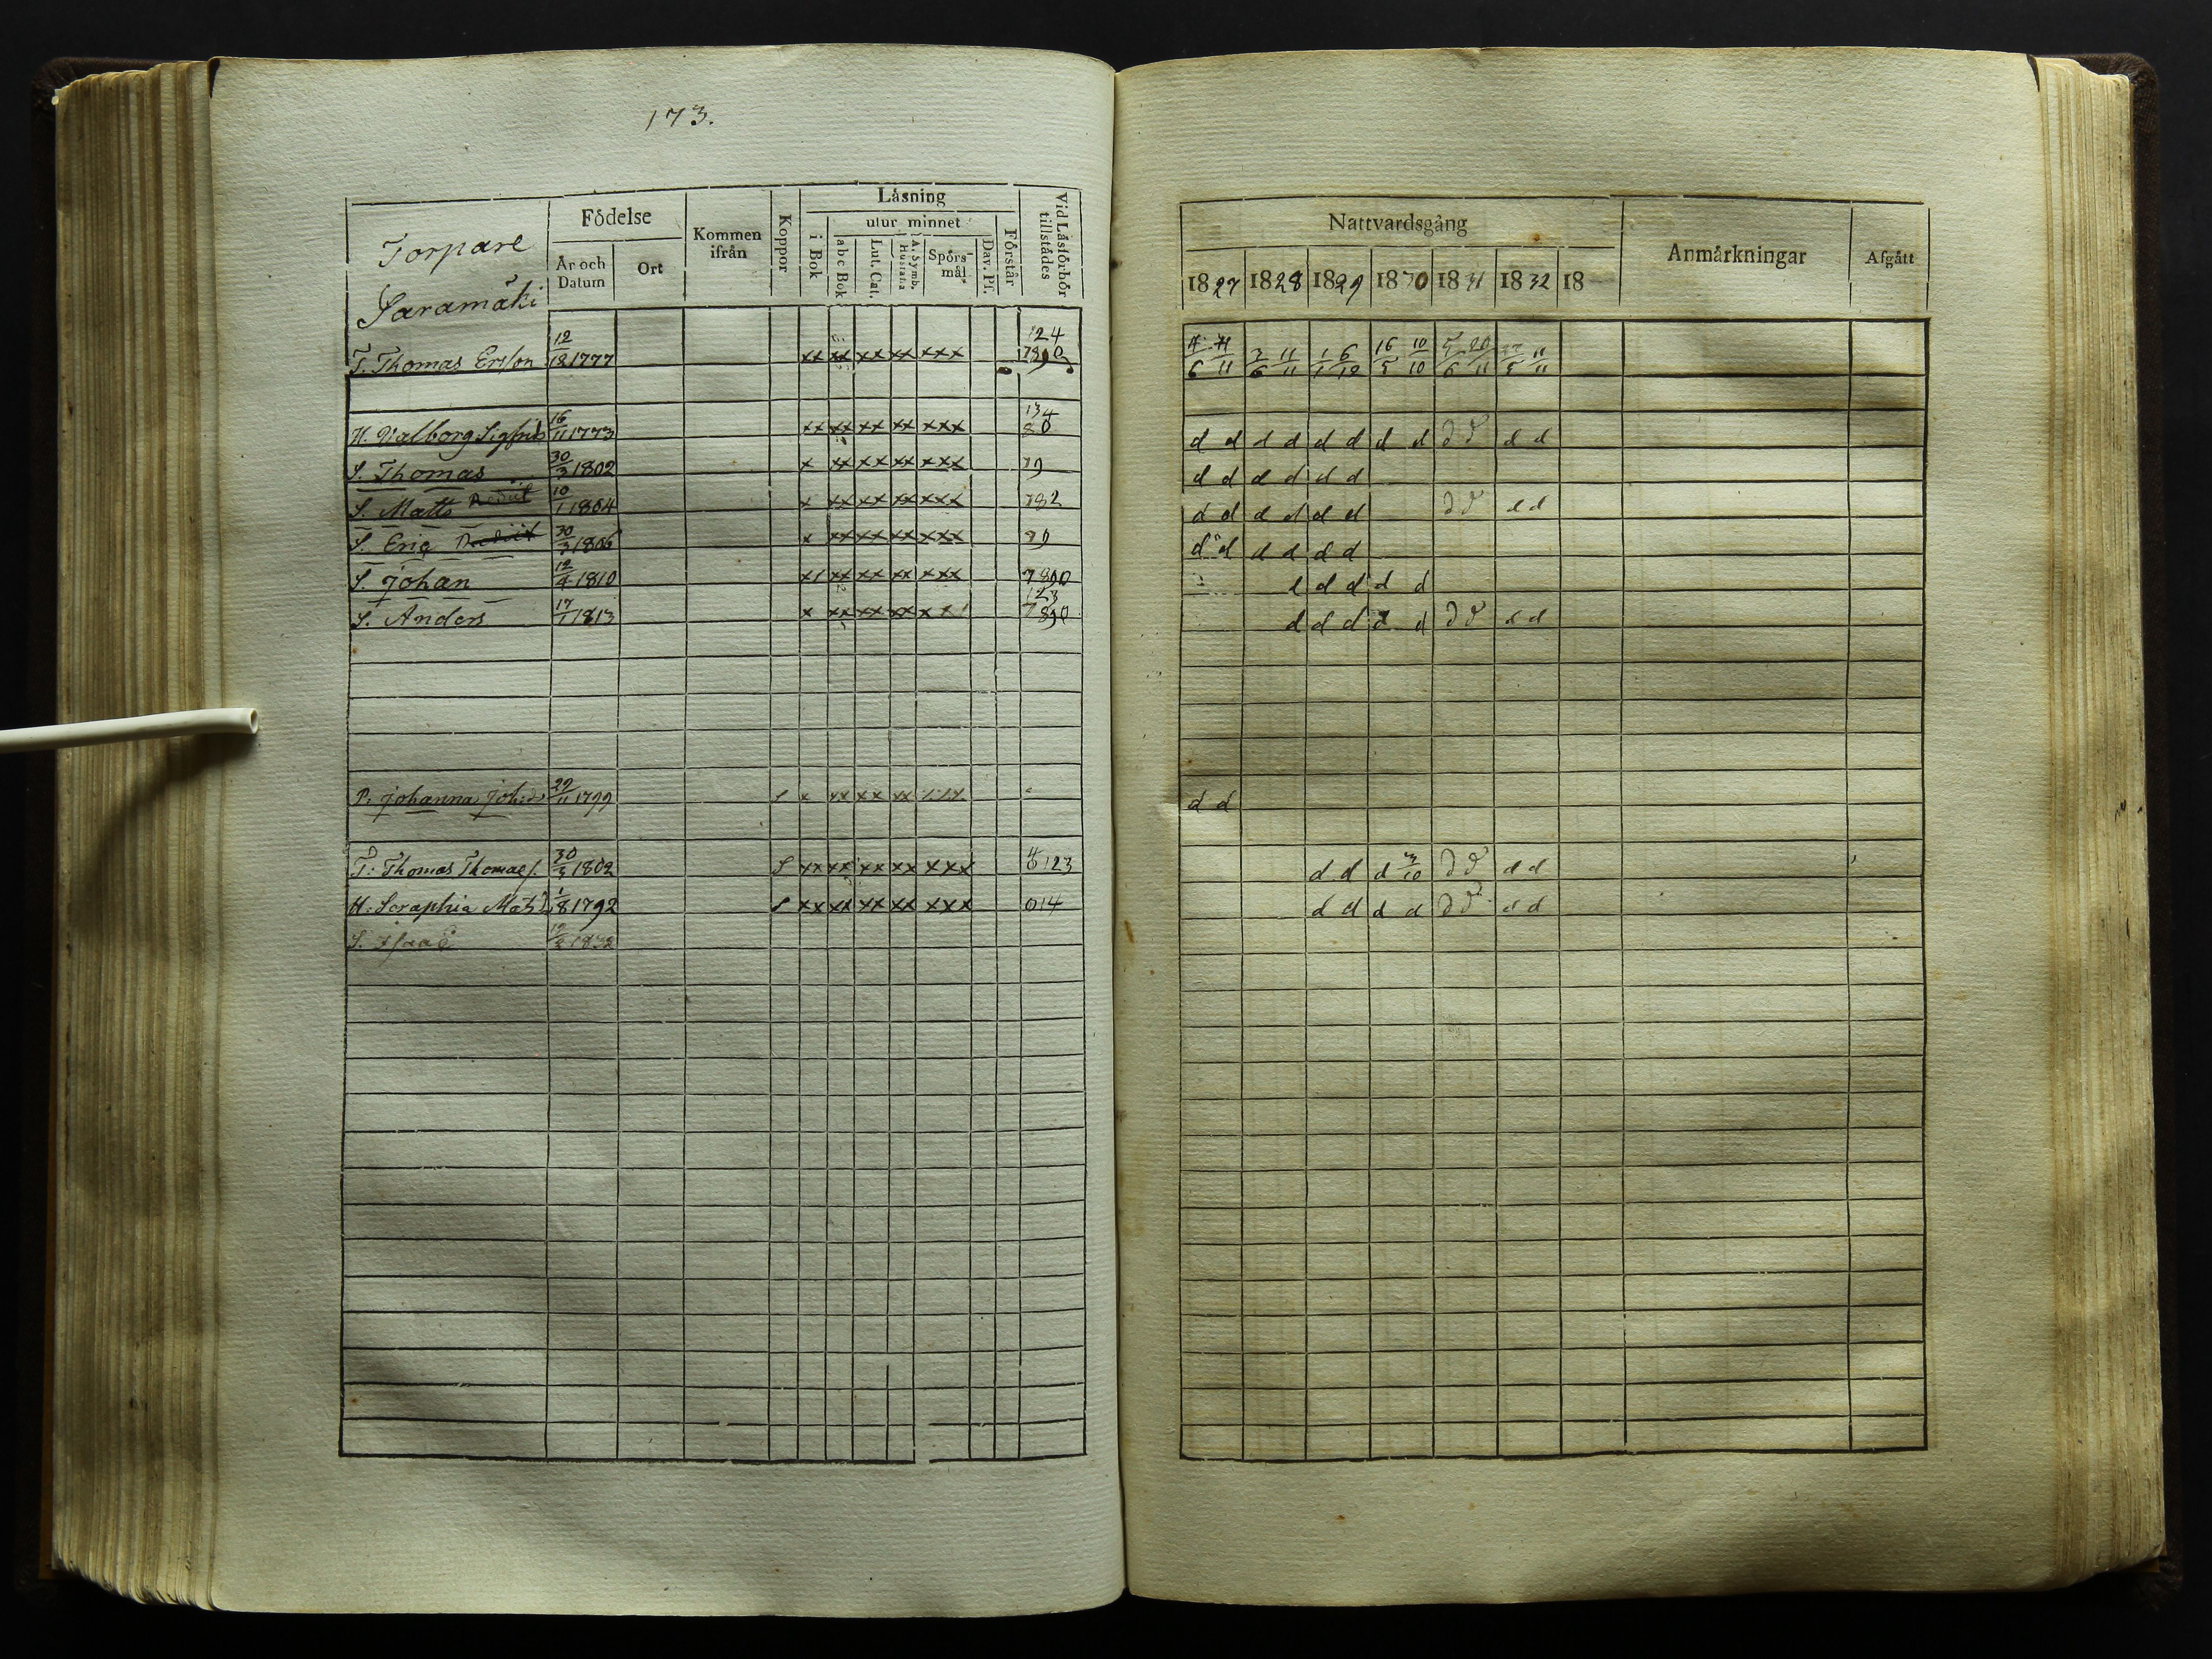 173.
Torpare
Saramäki
Födelse
År och Datum
Ort
Kommen ifrån
Koppor
Läsning
i Bok
utur minnet
abc Bok
Lut. Cat.
A. Symb. Hustafla
Spörsmål
Dav. Ps.
Förstår
Vid Läsförhör tillstädes
T. Thomas Ersson 12/12 1777 xx xx xx xx xxx 124 7890
H. Valborg Sigfrids 16/11 1773 xx xx xx xx xxx 134 80
S. Thomas 30/3 1802 x xx xx xx xxx 79
S. Matts 10/1 1804 x xx xx xx xxx 782
S. Eric 30/3 1806 x xx xx xx xxx 89
S. Johan 12/4 1810 x/ xx xx xx xxx 7890
S. Anders 17/1 1813 x xx xx xx xx/ 123 7890
P. Johanna Joh:d 29/11 1799 x xx xx xx
T: Thomas Thomaes. 30/3 1802 xx xx xx xx xxx 123
H: Seraphia Mats D 1/8 1792 xx xx xx xx xxx 014
S. Isaac 1832
Nattvardsgång
Anmärkningar
Afgått
1827 1828 1829 1830 1831 1832 18
11/11 1/1 6/12 16/5 10/10 11/11
d d d d d d d d d d d d
d d d d d d
d d d d d d d d d d
d d d d d d
d d d d d
d d d d d d d d d
d d
d d d d d d d
d d d d d d d d